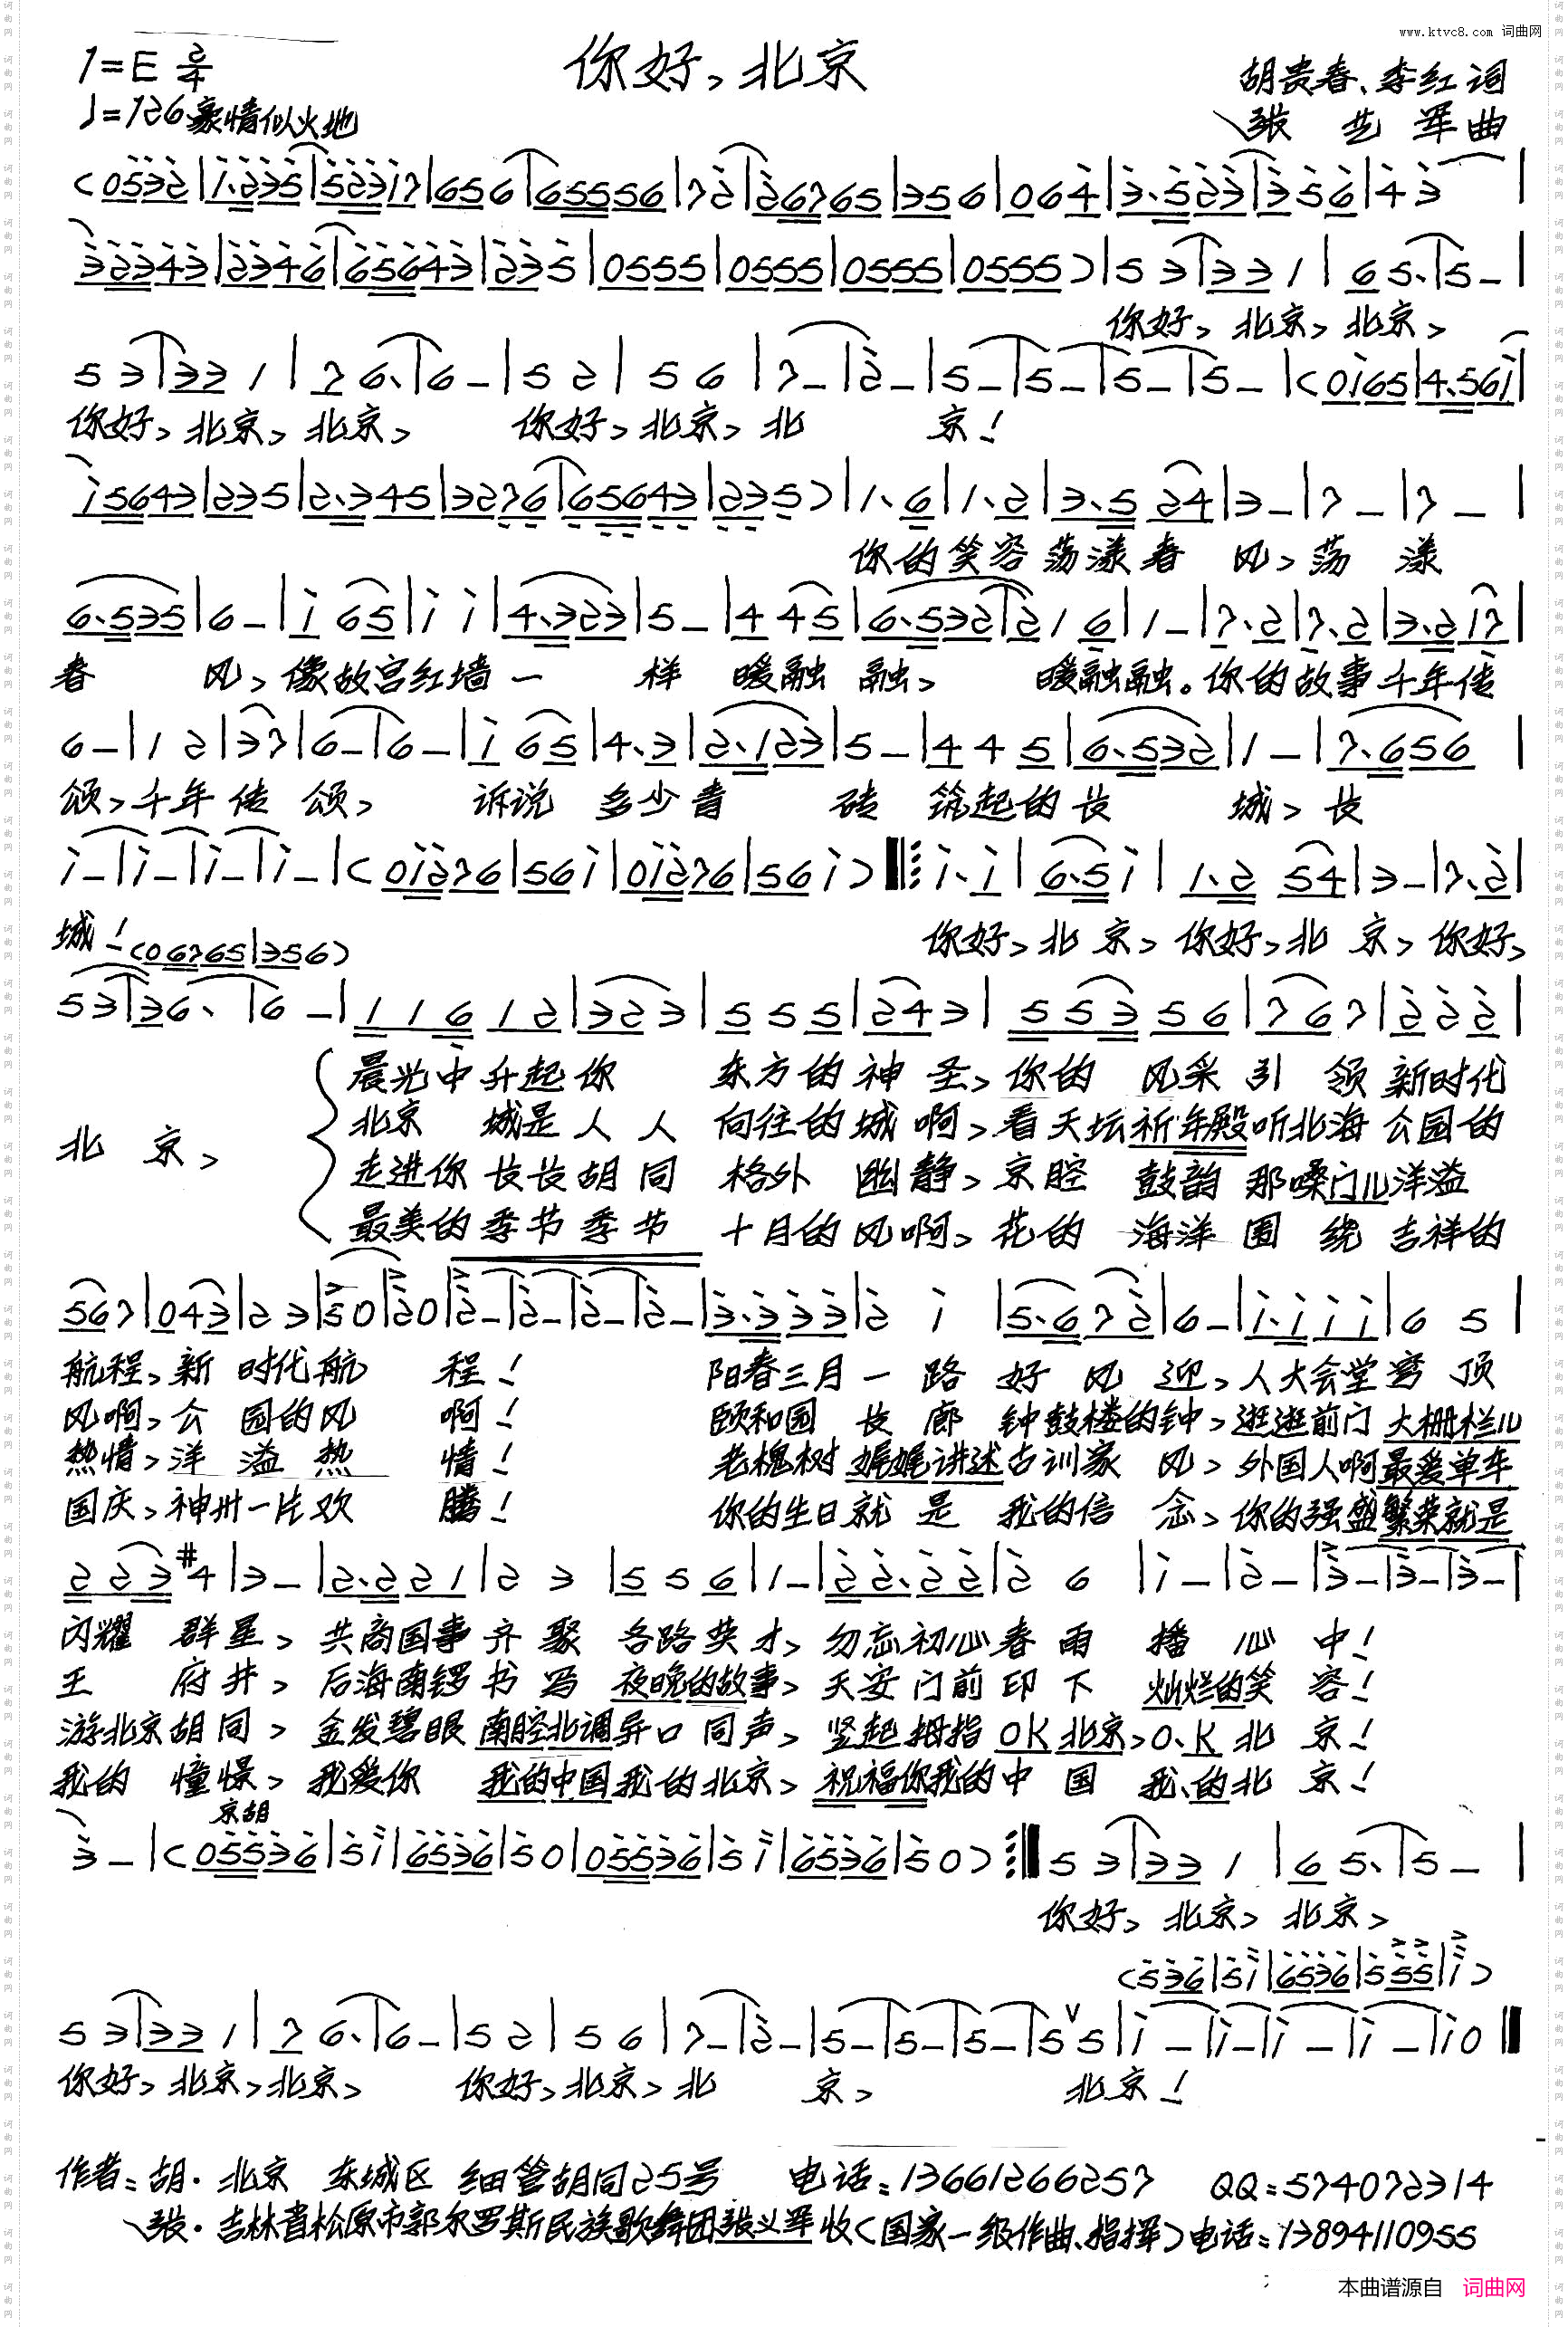 www.ktvc8.com 词曲网
你好,北京
1=E 2/4
胡贵春、李红词
♩=126 豪情似火地
张艺军曲
你好,北京,北京,
你好,北京,北京,你好,北京,北京!
你的笑容荡漾春风,荡漾
春风,像故宫红墙一样暖融融,暖融融。你的故事千年传
颂,千年传颂,诉说多少青砖筑起的长城,长
城!
你好,北京,你好,北京,你好,
北京,
晨光中升起你东方的神圣,你的风采引领新时代
北京城是人人向往的城啊,看天坛祈年殿听北海公园的
走进你长长胡同格外幽静,京腔鼓韵那嗓门儿洋溢
最美的季节季节十月的风啊,花的海洋围绕吉祥的
航程,新时代航程!阳春三月一路好风迎,人大会堂穹顶
风啊,公园的风啊!颐和园长廊钟鼓楼的钟,逛逛前门大栅栏儿
热情,洋溢热情!老槐树娓娓讲述古训家风,外国人啊最爱单车
国庆,神州一片欢腾!你的生日就是我的信念,你的强盛繁荣就是
闪耀群星,共商国事齐聚各路英才,勿忘初心春雨播心中!
王府井,后海南锣书写夜晚的故事,天安门前印下灿烂的笑容!
游北京胡同,金发碧眼南腔北调异口同声,竖起拇指OK北京,O.K北京!
我的憧憬,我爱你我的中国我的北京,祝福你我的中国我的北京!
京胡
你好,北京,北京,
你好,北京,北京,你好,北京,北京,北京!
作者:胡·北京 东城区 细管胡同25号 电话:13661266257 QQ:574072314
张·吉林省松原市郭尔罗斯民族歌舞团张义军收(国家一级作曲、指挥)电话:13894110955
本曲谱源自 词曲网